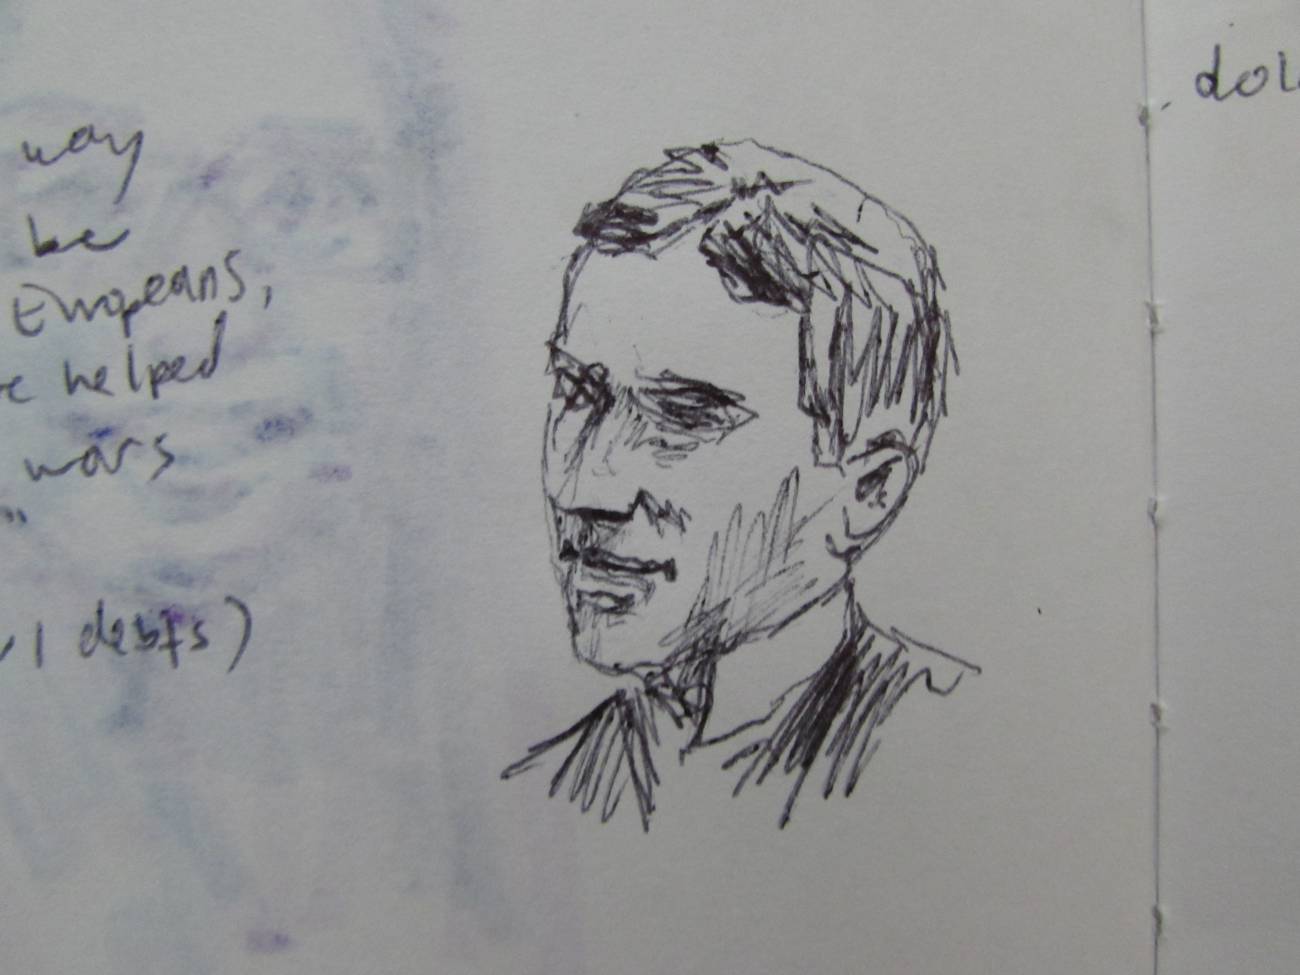 way
be
Europeans,
helped
wars
"
debts)
dol